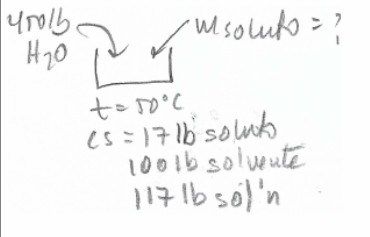 450lb
H₂O
m soluto = ?
t = 50°C
cs = 17 lb soluto
100 lb solvente
117 lb sol'n